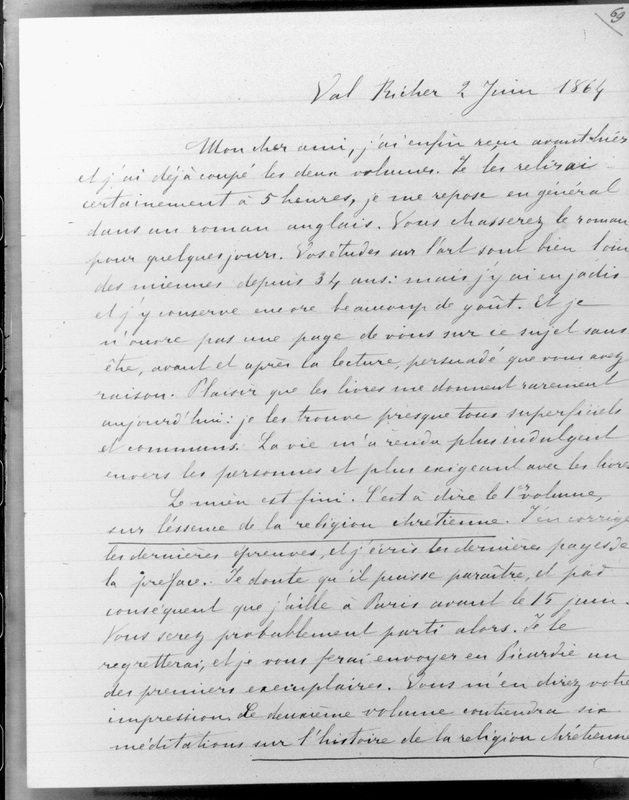 69
Val Richer 2 Juin 1864
Mon cher ami, j'ai enfin reçu avant hier
et j'ai déjà coupé les deux volumes. Je les relirai
certainement à 5 heures, je me repose en général
dans un roman anglais. Vous chasserez le roman
pour quelques jours. Vos études sur l'art sont bien loin
des miennes depuis 34 ans : mais j'y ai en jadis
et j'y conserve encore beaucoup de goût. Et je
n'ouvre pas une page de vous sur ce sujet sans
être, avant et après la lecture, persuadé que vous avez
raison. Plaisir que les livres me donnent rarement
aujourd'hui : je les trouve presque tous superficiels
et communs. La vie m'a rendu plus indulgent
envers les personnes et plus exigeant avec les livres
Le mien est fini. C'est à dire le 1er volume,
sur l'éssence de la religion chrétienne. J'en corrige
les dernières épreuves, et j'écris les dernières pages de
la préface. Je doute qu'il puisse paraître, et par
conséquent que j'aille à Paris avant le 15 juin.
Vous serez probablement parti alors. Je le
regretterai, et je vous ferai envoyer en Picardie un
des premiers exemplaires. Vous m'en direz votre
impression. Le deuxième volume contiendra six
méditations sur l'histoire de la religion chrétienne